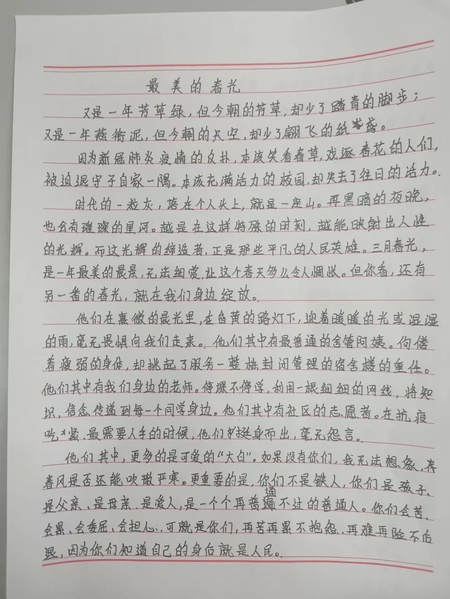 最美的春光
又是一年芳草绿，但今朝的芳草，却少了踏青的脚步；
又是一年燕衔泥，但今朝的天空，却少了翩飞的纸鸢。
因为新冠肺炎疫情的反扑，本该笑看春草，戏逐春花的人们，
被迫退守于自家一隅。本应充满活力的校园，却失去了往日的活力。
时代的一粒灰，落在个人头上，就是一座山。再黑暗的夜晚，
也会有璀璨的星河。越是在这样特殊的时刻，越能映射出人性
的光辉。而这光辉的缔造者，正是那些平凡的人民英雄。三月春光，
是一年最美的盛景，无法细赏，让这个春天多么令人惆怅。但你看，还有
另一番的春光，就在我们身边绽放。
他们在熹微的晨光里，在昏黄的路灯下，迎着暖暖的光或湿湿
的雨，毫无畏惧向我们走来。他们其中有最普通的舍管阿姨。佝偻
着疲弱的身体，却挑起了服务一整栋封闭管理的宿舍楼的重任。
他们其中有我们身边的老师。停课不停学，利用一根细细的网线，将知
识，信念传递到每一个同学身边。他们其中有社区的志愿者。在抗疫
吃紧、最需要人手的时候，他们挺身而出，毫无怨言。
他们其中，更多的是可爱的“大白”。如果没有你们，我无法想象，春
春风是否还能吹散严寒。更重要的是，你们不是铁人，你们是孩子、
是父亲、是母亲、是爱人，是一个个再普通不过的普通人。你们会苦、
会累、会委屈、会担心、可就是你们，再苦再累不抱怨、再难再险不后
退，因为你们知道自己的身后就是人民。